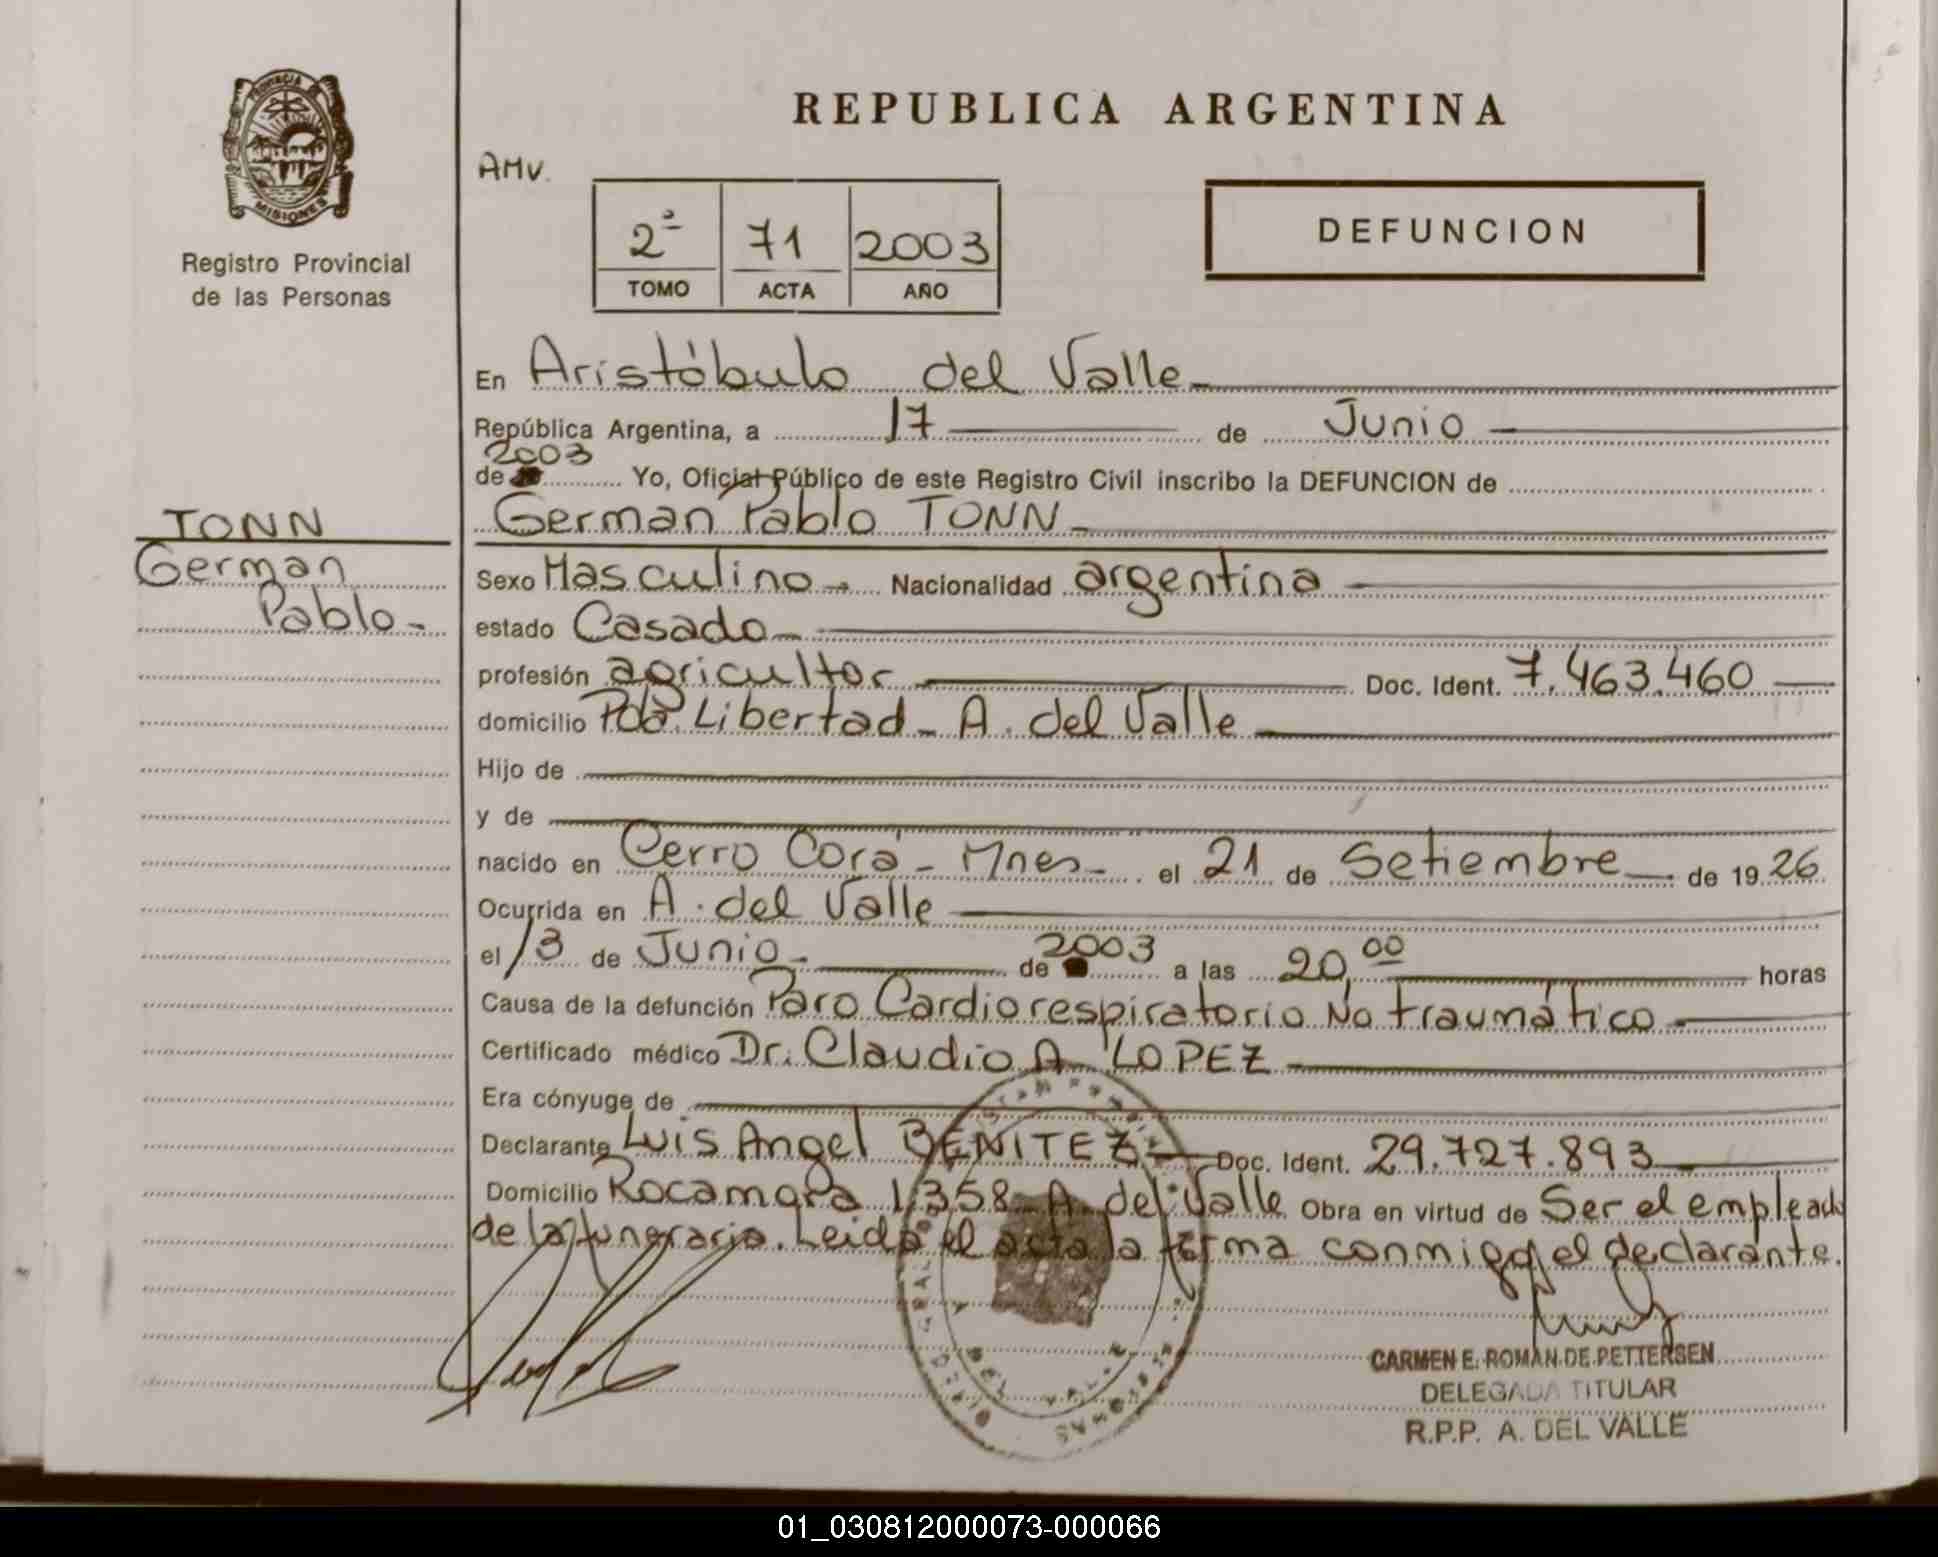 PROVINCIA DE
MISIONES
Registro Provincial
de las Personas
REPUBLICA ARGENTINA
AMV.
2ª 71 2003
TOMO ACTA AÑO
DEFUNCION
En Aristóbulo del Valle
República Argentina, a 17 de Junio
2003
de Yo, Oficial Público de este Registro Civil inscribo la DEFUNCION de
German Pablo TONN
TONN
German
Pablo
Sexo Masculino Nacionalidad argentina
estado Casado
profesión agricultor Doc. Ident. 7.463.460
domicilio Pda. Libertad - A. del Valle
Hijo de
y de
nacido en Cerro Corá - Mnes el 21 de Setiembre de 1926
Ocurrida en A. del Valle
el 13 de Junio de 2003 a las 20,00 horas
Causa de la defunción Paro Cardiorespiratorio No traumático
Certificado médico Dr. Claudio A LOPEZ
Era cónyuge de
Declarante Luis Angel BENITEZ Doc. Ident. 29.727.893
Domicilio Rocamora 1.358 A. del Valle Obra en virtud de Ser el empleado
de la funeraria. Leida el acta la firma conmigo el declarante.
CARMEN E. ROMAN DE PETTERSEN
DELEGADA TITULAR
R.P.P. A. DEL VALLE
01_030812000073-000066